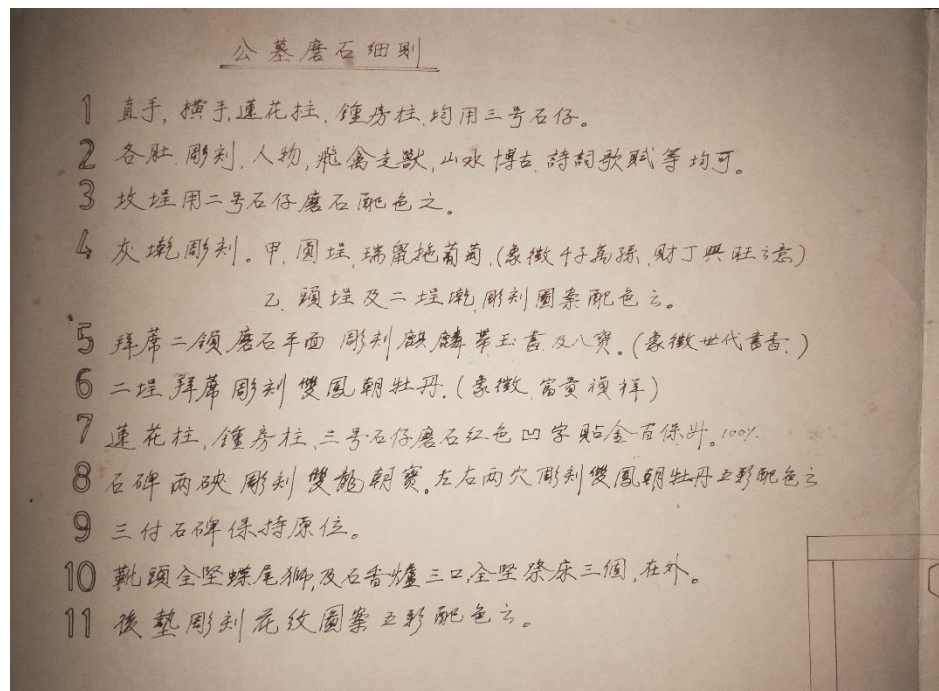 公墓磨石細則
1 直手,橫手,蓮花柱,鐘房柱,均用三号石仔。
2 各肚,彫刻,人物,飛禽走獸,山水博古,詩詞歌賦等均可。
3 坟埕用二号石仔磨石配色之。
4 灰墘彫刻。甲,圓埕,瑞鼠拖葡萄,(象徵千子萬孫,財丁興旺之意)
乙,頭埕及二埕墘,彫刻圖案配色之。
5 拜蓆二領磨石平面 彫刻麒麟帶玉書,及八寶。(象徵世代書香.)
6 二埕拜蓆彫刻雙鳳朝牡丹.(象徵,富貴禎祥)
7 蓮花柱,鐘房柱,三号石仔磨石紅色凹字貼金百保外。100%
8 石碑兩硤彫刻雙龍朝寶。左右兩穴彫刻雙鳳朝牡丹五彩配色之
9 三付石碑保持原位。
10 靴頭全堅蝶尾獅,及石香爐三口,全堅祭床三個,在外。
11 後墊彫刻花紋圖案五彩配色之。